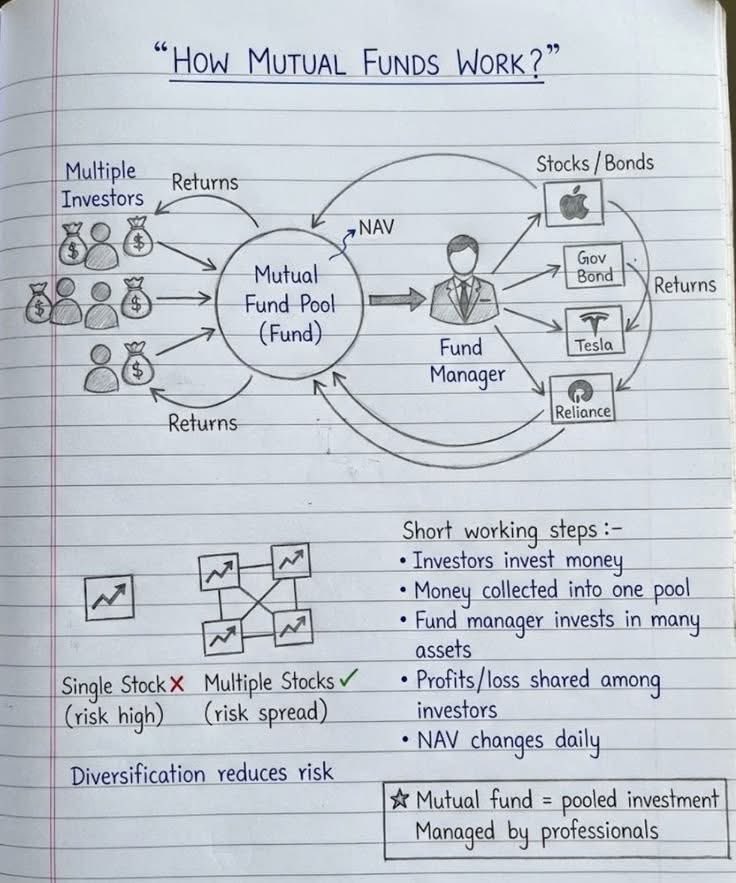 “HOW MUTUAL FUNDS WORK?”
Multiple
Investors
Returns
$
$
$
$
$
Returns
NAV
Mutual
Fund Pool
(Fund)
Fund
Manager
Stocks/Bonds
Gov
Bond
Tesla
Reliance
Returns
Single Stock ✗
(risk high)
Multiple Stocks ✓
(risk spread)
Diversification reduces risk
Short working steps :-
• Investors invest money
• Money collected into one pool
• Fund manager invests in many
assets
• Profits/loss shared among
investors
• NAV changes daily
☆ Mutual fund = pooled investment
Managed by professionals